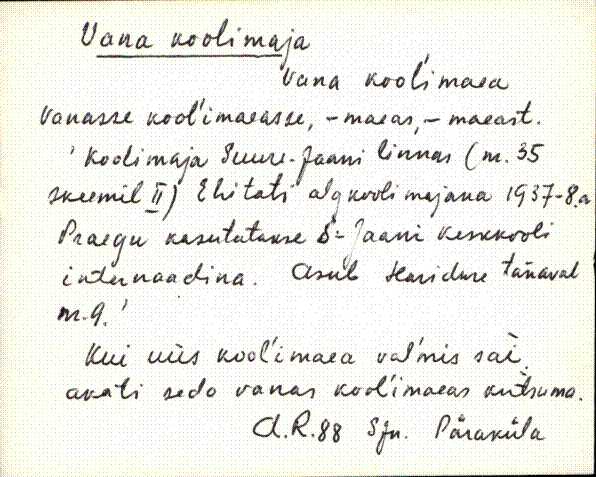 Vana koolimaja
Vana kool'imaea
vanasse kool'imaeasse, -maeas, -maeast.
'Koolimaja Suure-Jaani linnas (nr. 35
skeemil II) Ehitati algkooli majana 1937-8.a
Praegu kasutatakse S-Jaani keskkooli
internaadina. Asub Hariduse tänaval
nr. 9.'
Kui uis kool'imaea val'mis sai,
akati sedo vanas kool'imaeas kutsuma.
A.R. 88 Sjn. Päraküla